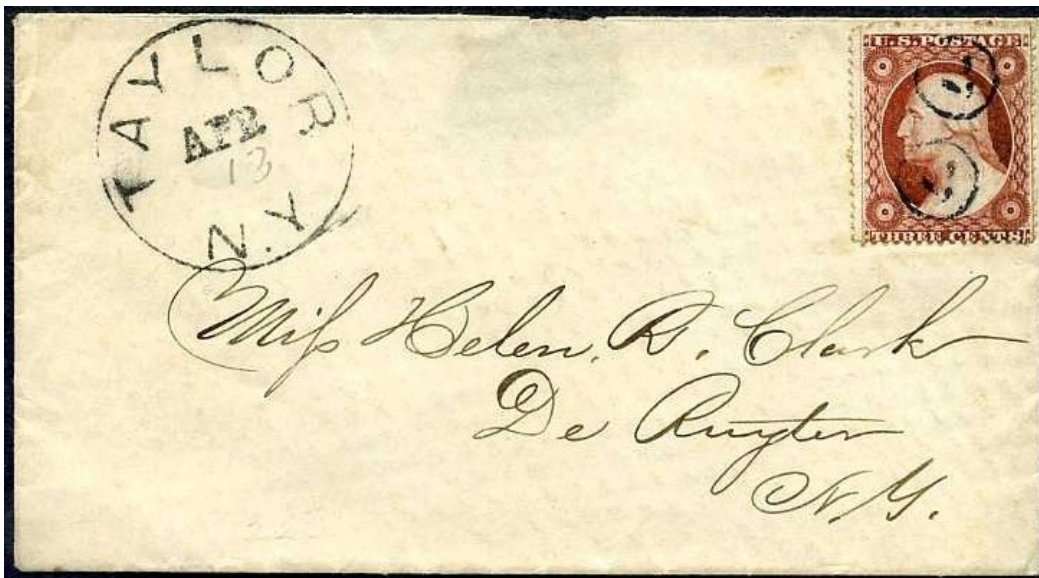 TAYLOR
APR
13
N.Y
U.S. POSTAGE
THREE CENTS
Miſs Helen. R. Clark
De Ruyter
N.Y.